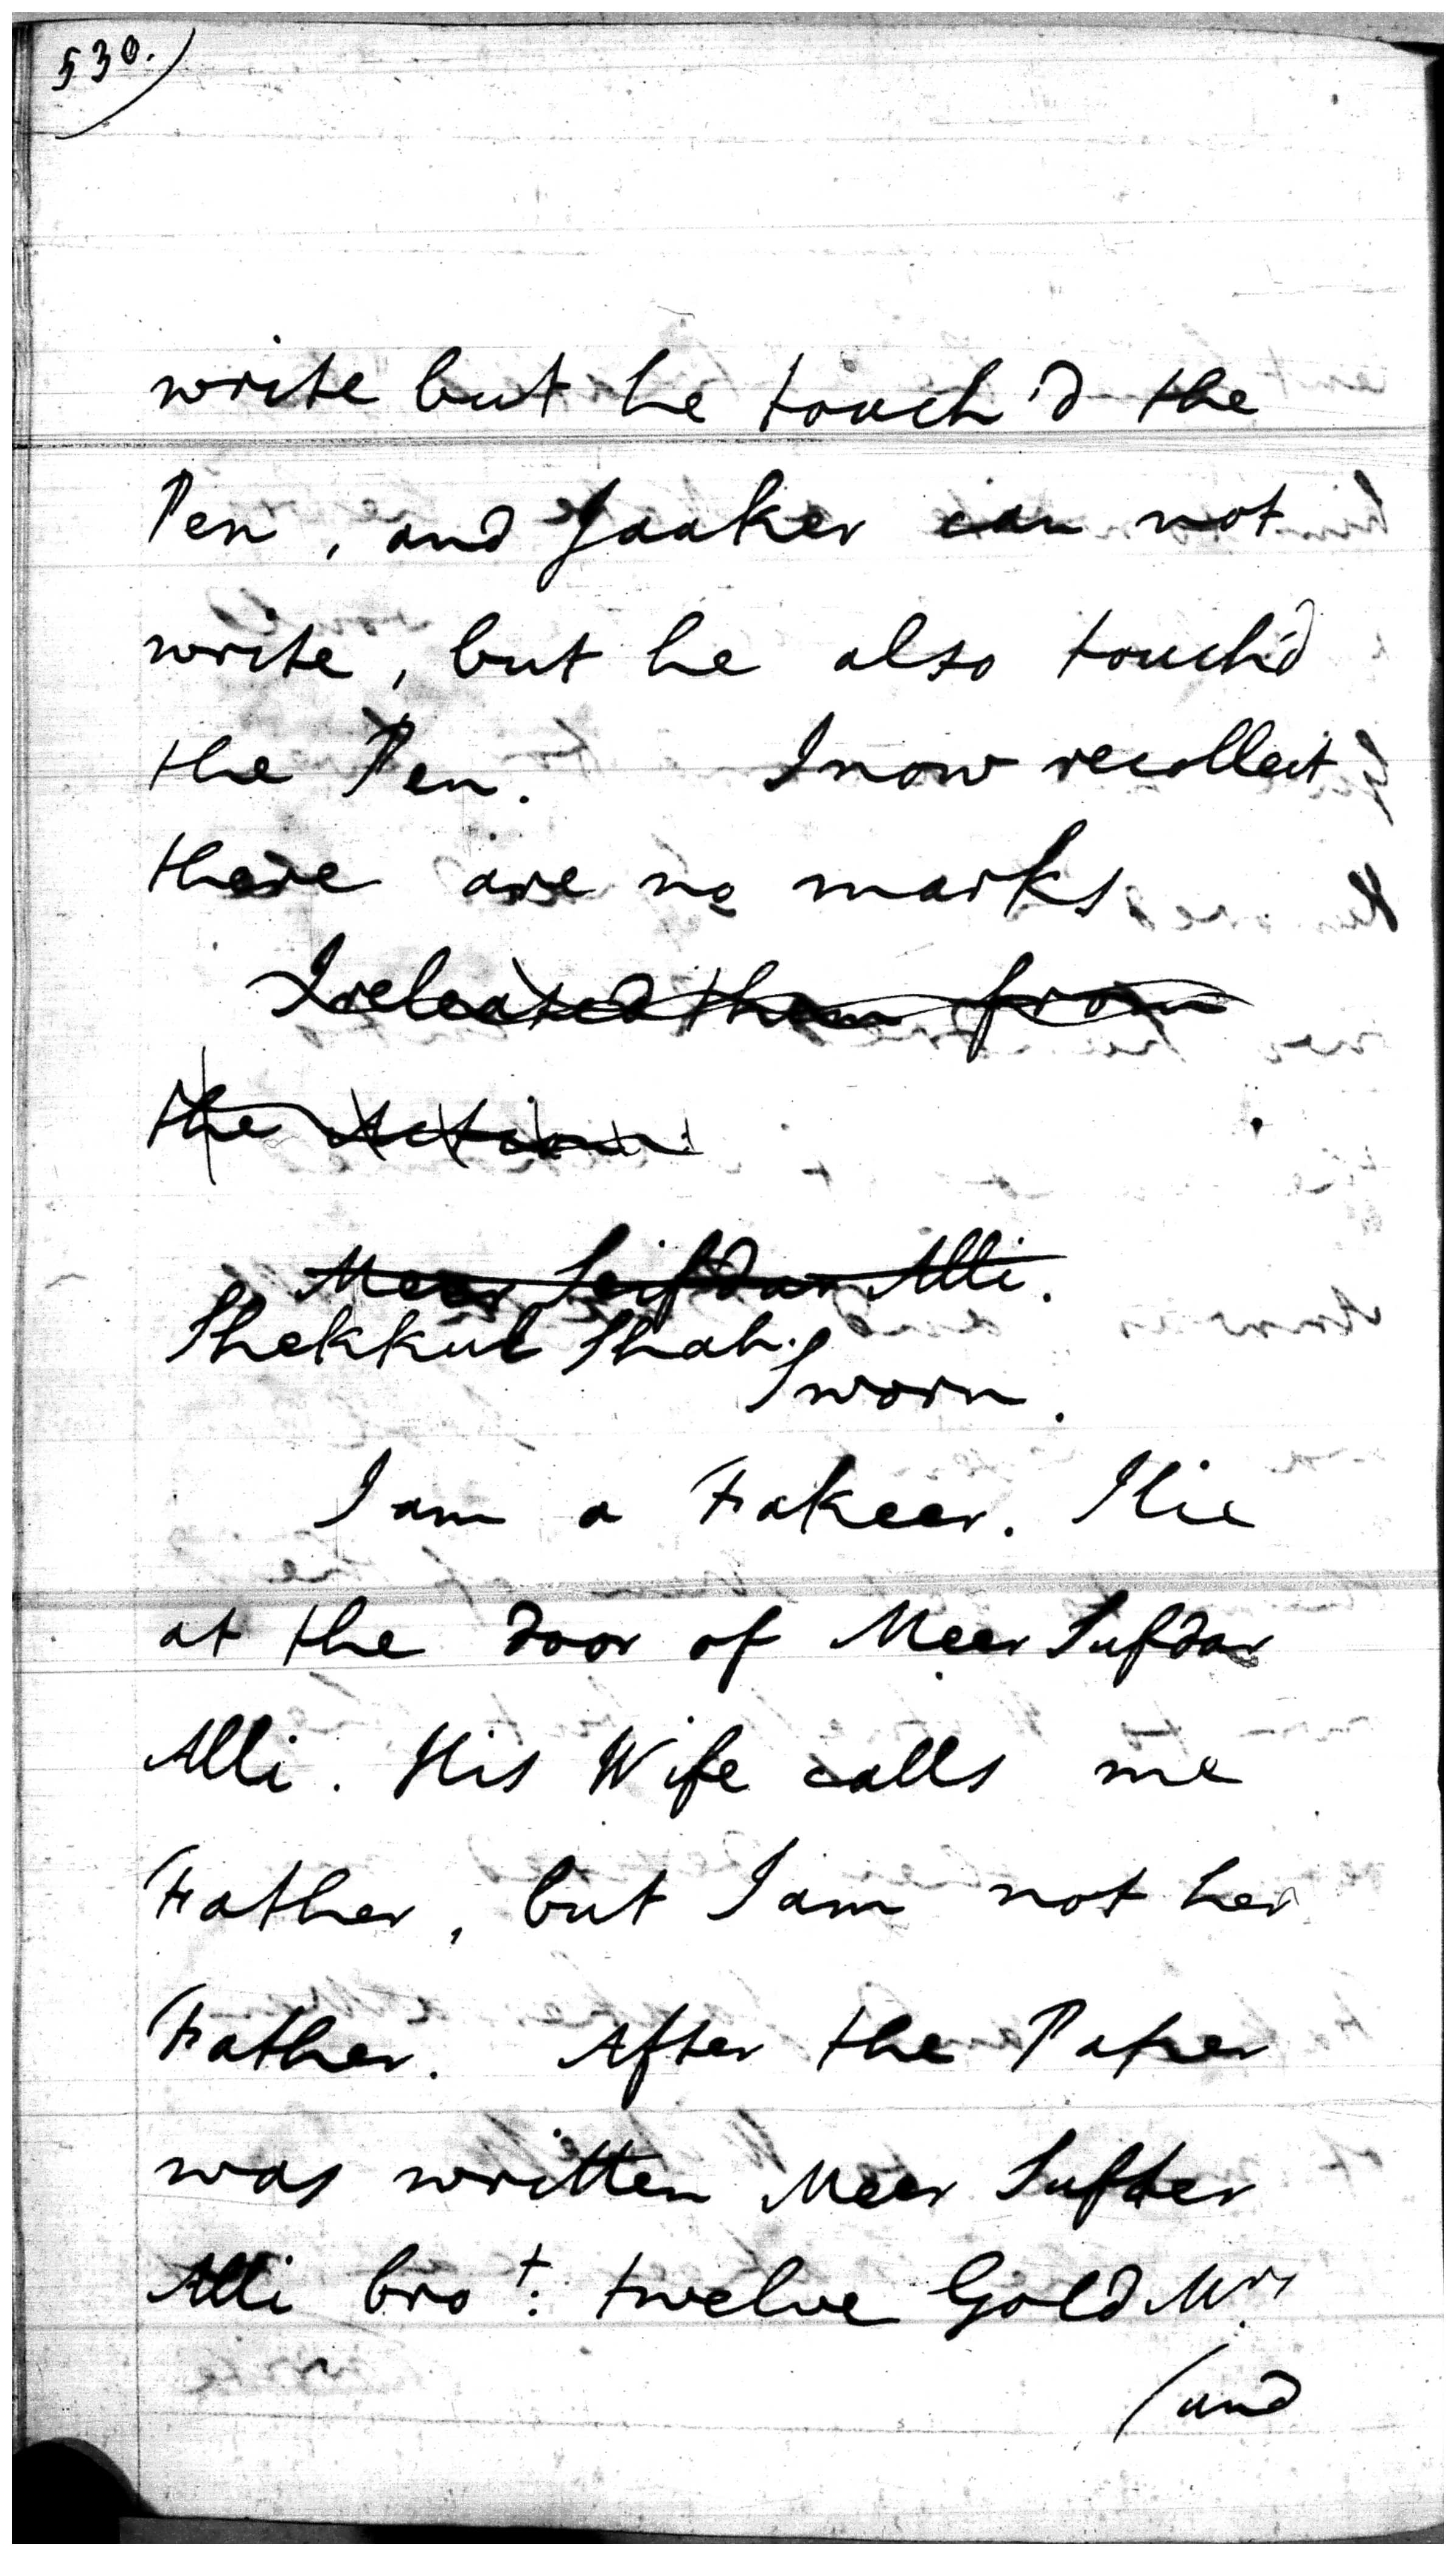 530.)
write but he touch'd the
Pen, and Jaaker can not
write, but he also touch'd
the Pen. I now recollect
there are no marks
I released them from
the Action
Meer Seifdar Alli.
Shekkul Shah.
Sworn.
I am a Fakeer. I lie
at the door of Meer Sufdar
Alli. His Wife calls me
Father, but I am not her
Father. After the Paper
was written Meer Sufder
Alli bro't: twelve Gold Mrs
(and